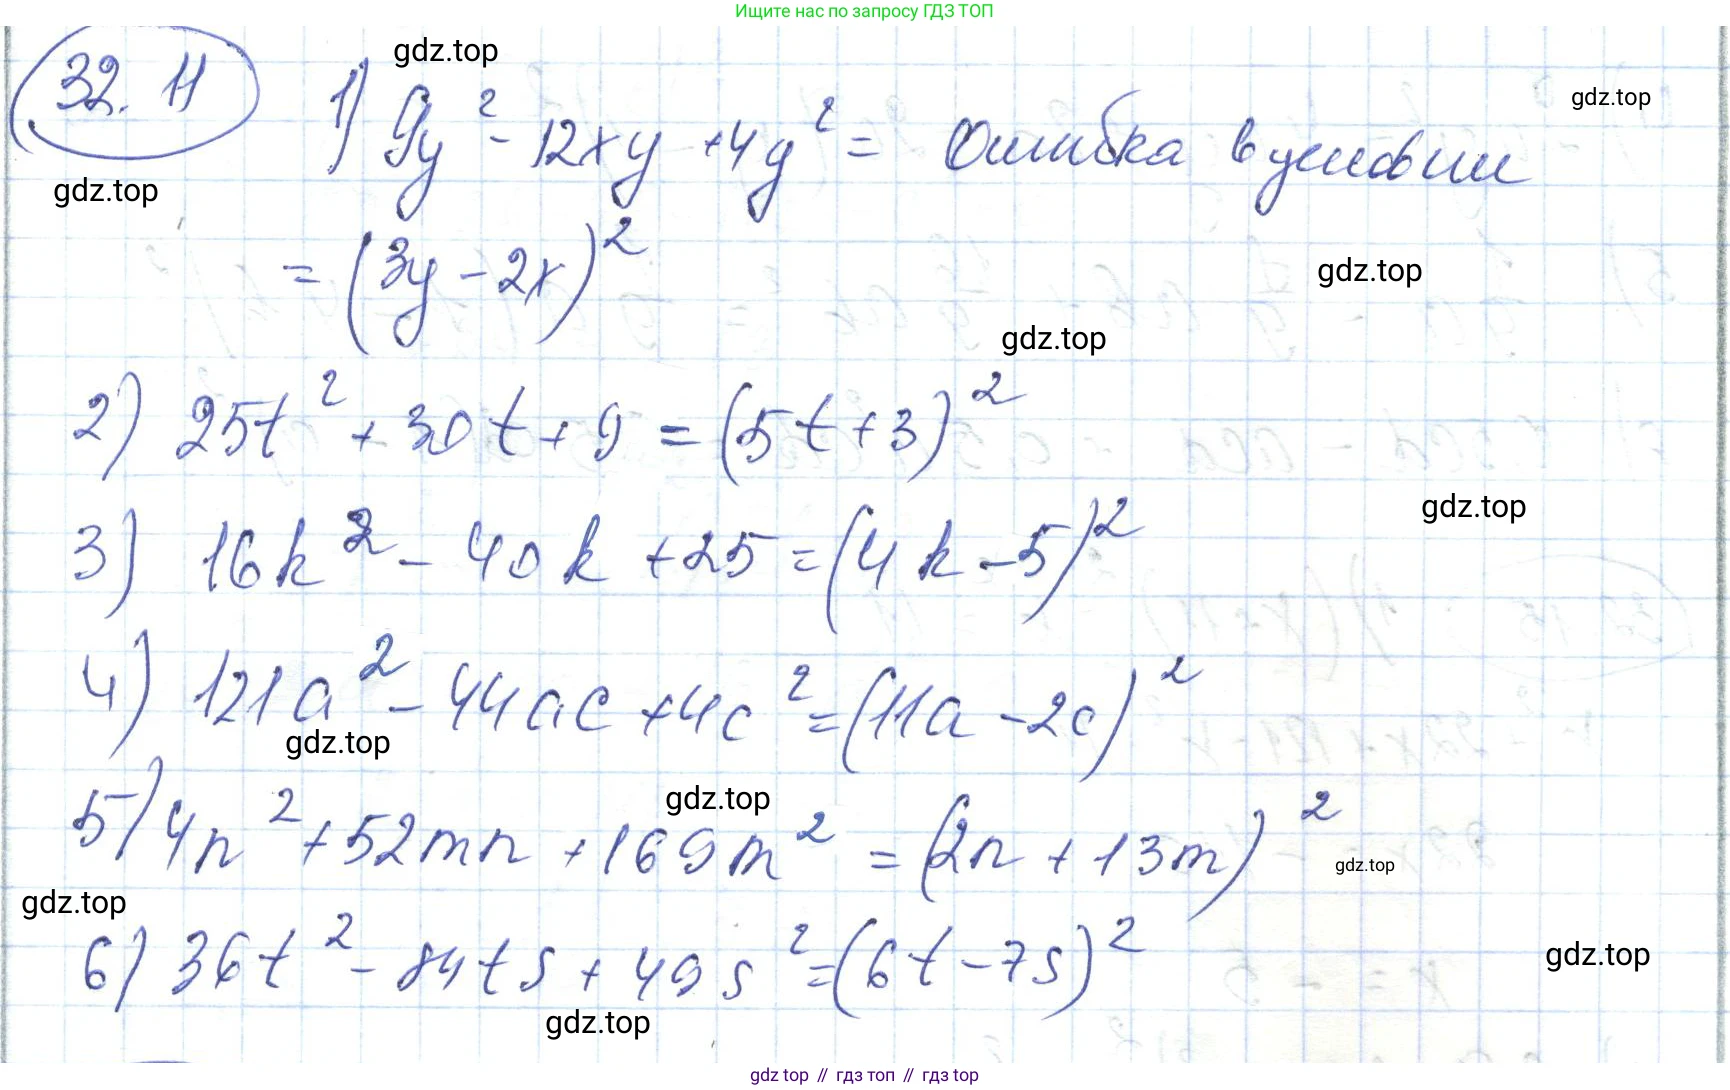 Ищите нас по запросу ГДЗ ТОП
32.11
gdz.top
gdz.top
1) 9y² - 12xy + 4y² = Ошибка в условии
gdz.top
= (3y - 2x)²
gdz.top
gdz.top
2) 25t² + 30t + 9 = (5t + 3)²
gdz.top
3) 16k² - 40k + 25 = (4k - 5)²
4) 121a² - 44ac + 4c² = (11a - 2c)²
gdz.top
gdz.top
5) 4n² + 52mn + 169m² = (2n + 13m)²
gdz.top
gdz.top
6) 36t² - 84ts + 49s² = (6t - 7s)²
gdz.top
gdz.top
gdz top // гдз топ // гдз top